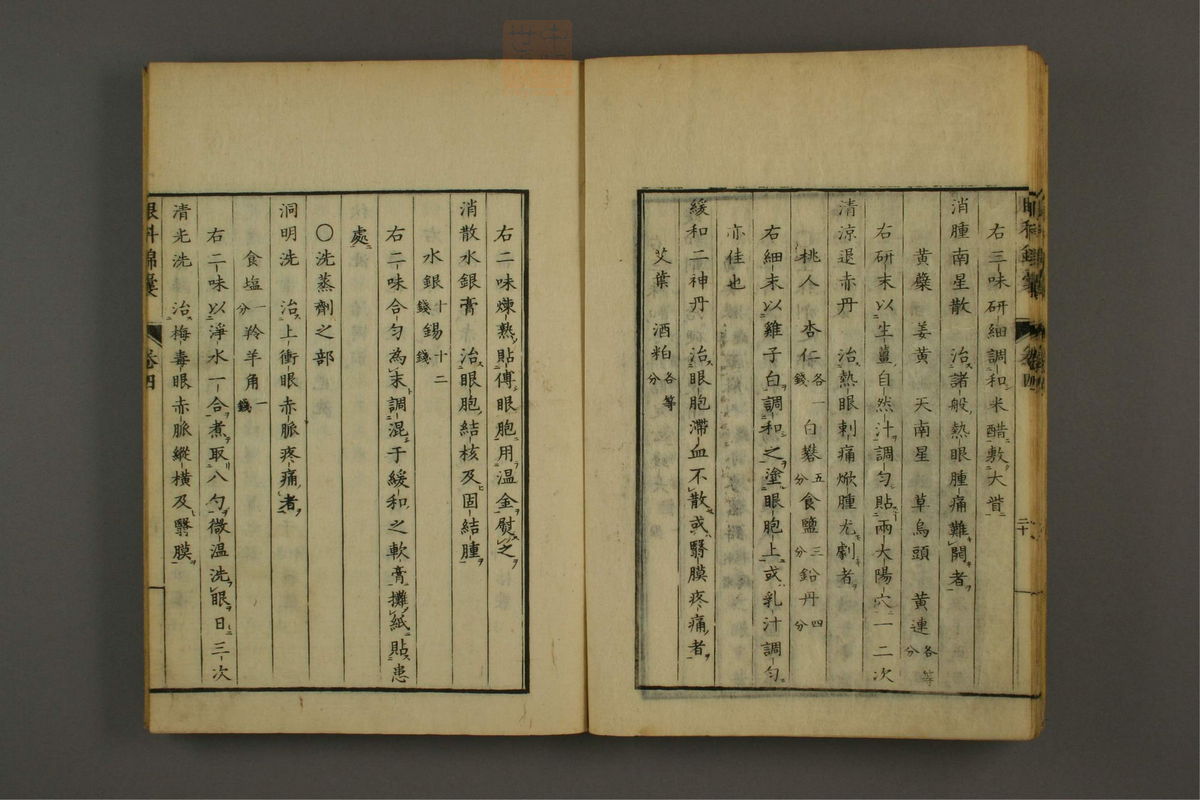 眼科錦囊 卷四 二十
右三味研細調和米醋敷大眥
消腫南星散 治諸般熱眼腫痛難開者
黃蘗 姜黃 天南星 草烏頭 黃連各等分
右研末以生薑自然汁調勻貼兩大陽穴一二次
清涼退赤丹 治熱眼刺痛焮腫尤劇者
桃人 杏仁各一錢 白礬五分 食鹽三分 鉛丹四分
右細末以雞子白調和之塗眼胞上或乳汁調勻
亦佳也
緩和二神丹 治眼胞滯血不散或翳膜疼痛者
艾葉 酒粕各等分
右二味煉熟貼傅眼胞用温金熨之
消散水銀膏 治眼胞結核及固結腫
水銀十錢 錫十二錢
右二味合勻為末調混于緩和之軟膏攤紙貼患
處
○洗蒸劑之部
洞明洗 治上衝眼赤脈疼痛者
食塩一分 羚羊角一錢
右二味以淨水一合煮取八勺微温洗眼日三次
清光洗 治梅毒眼赤脈縱橫及翳膜
眼科錦囊 卷四